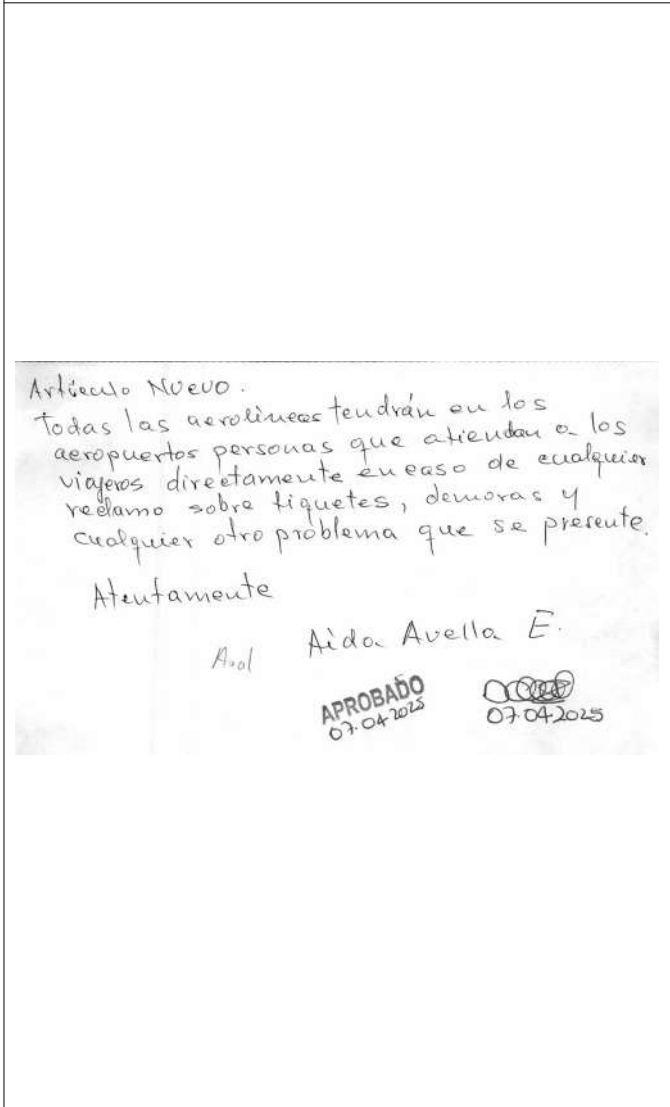 Artículo Nuevo.
Todas las aerolíneas tendrán en los
aeropuertos personas que atiendan a los
viajeros directamente en caso de cualquier
reclamo sobre tiquetes, demoras y
cualquier otro problema que se presente.
Atentamente
Aida Avella E.
Aval
APROBADO
07.04.2025
07.04.2025